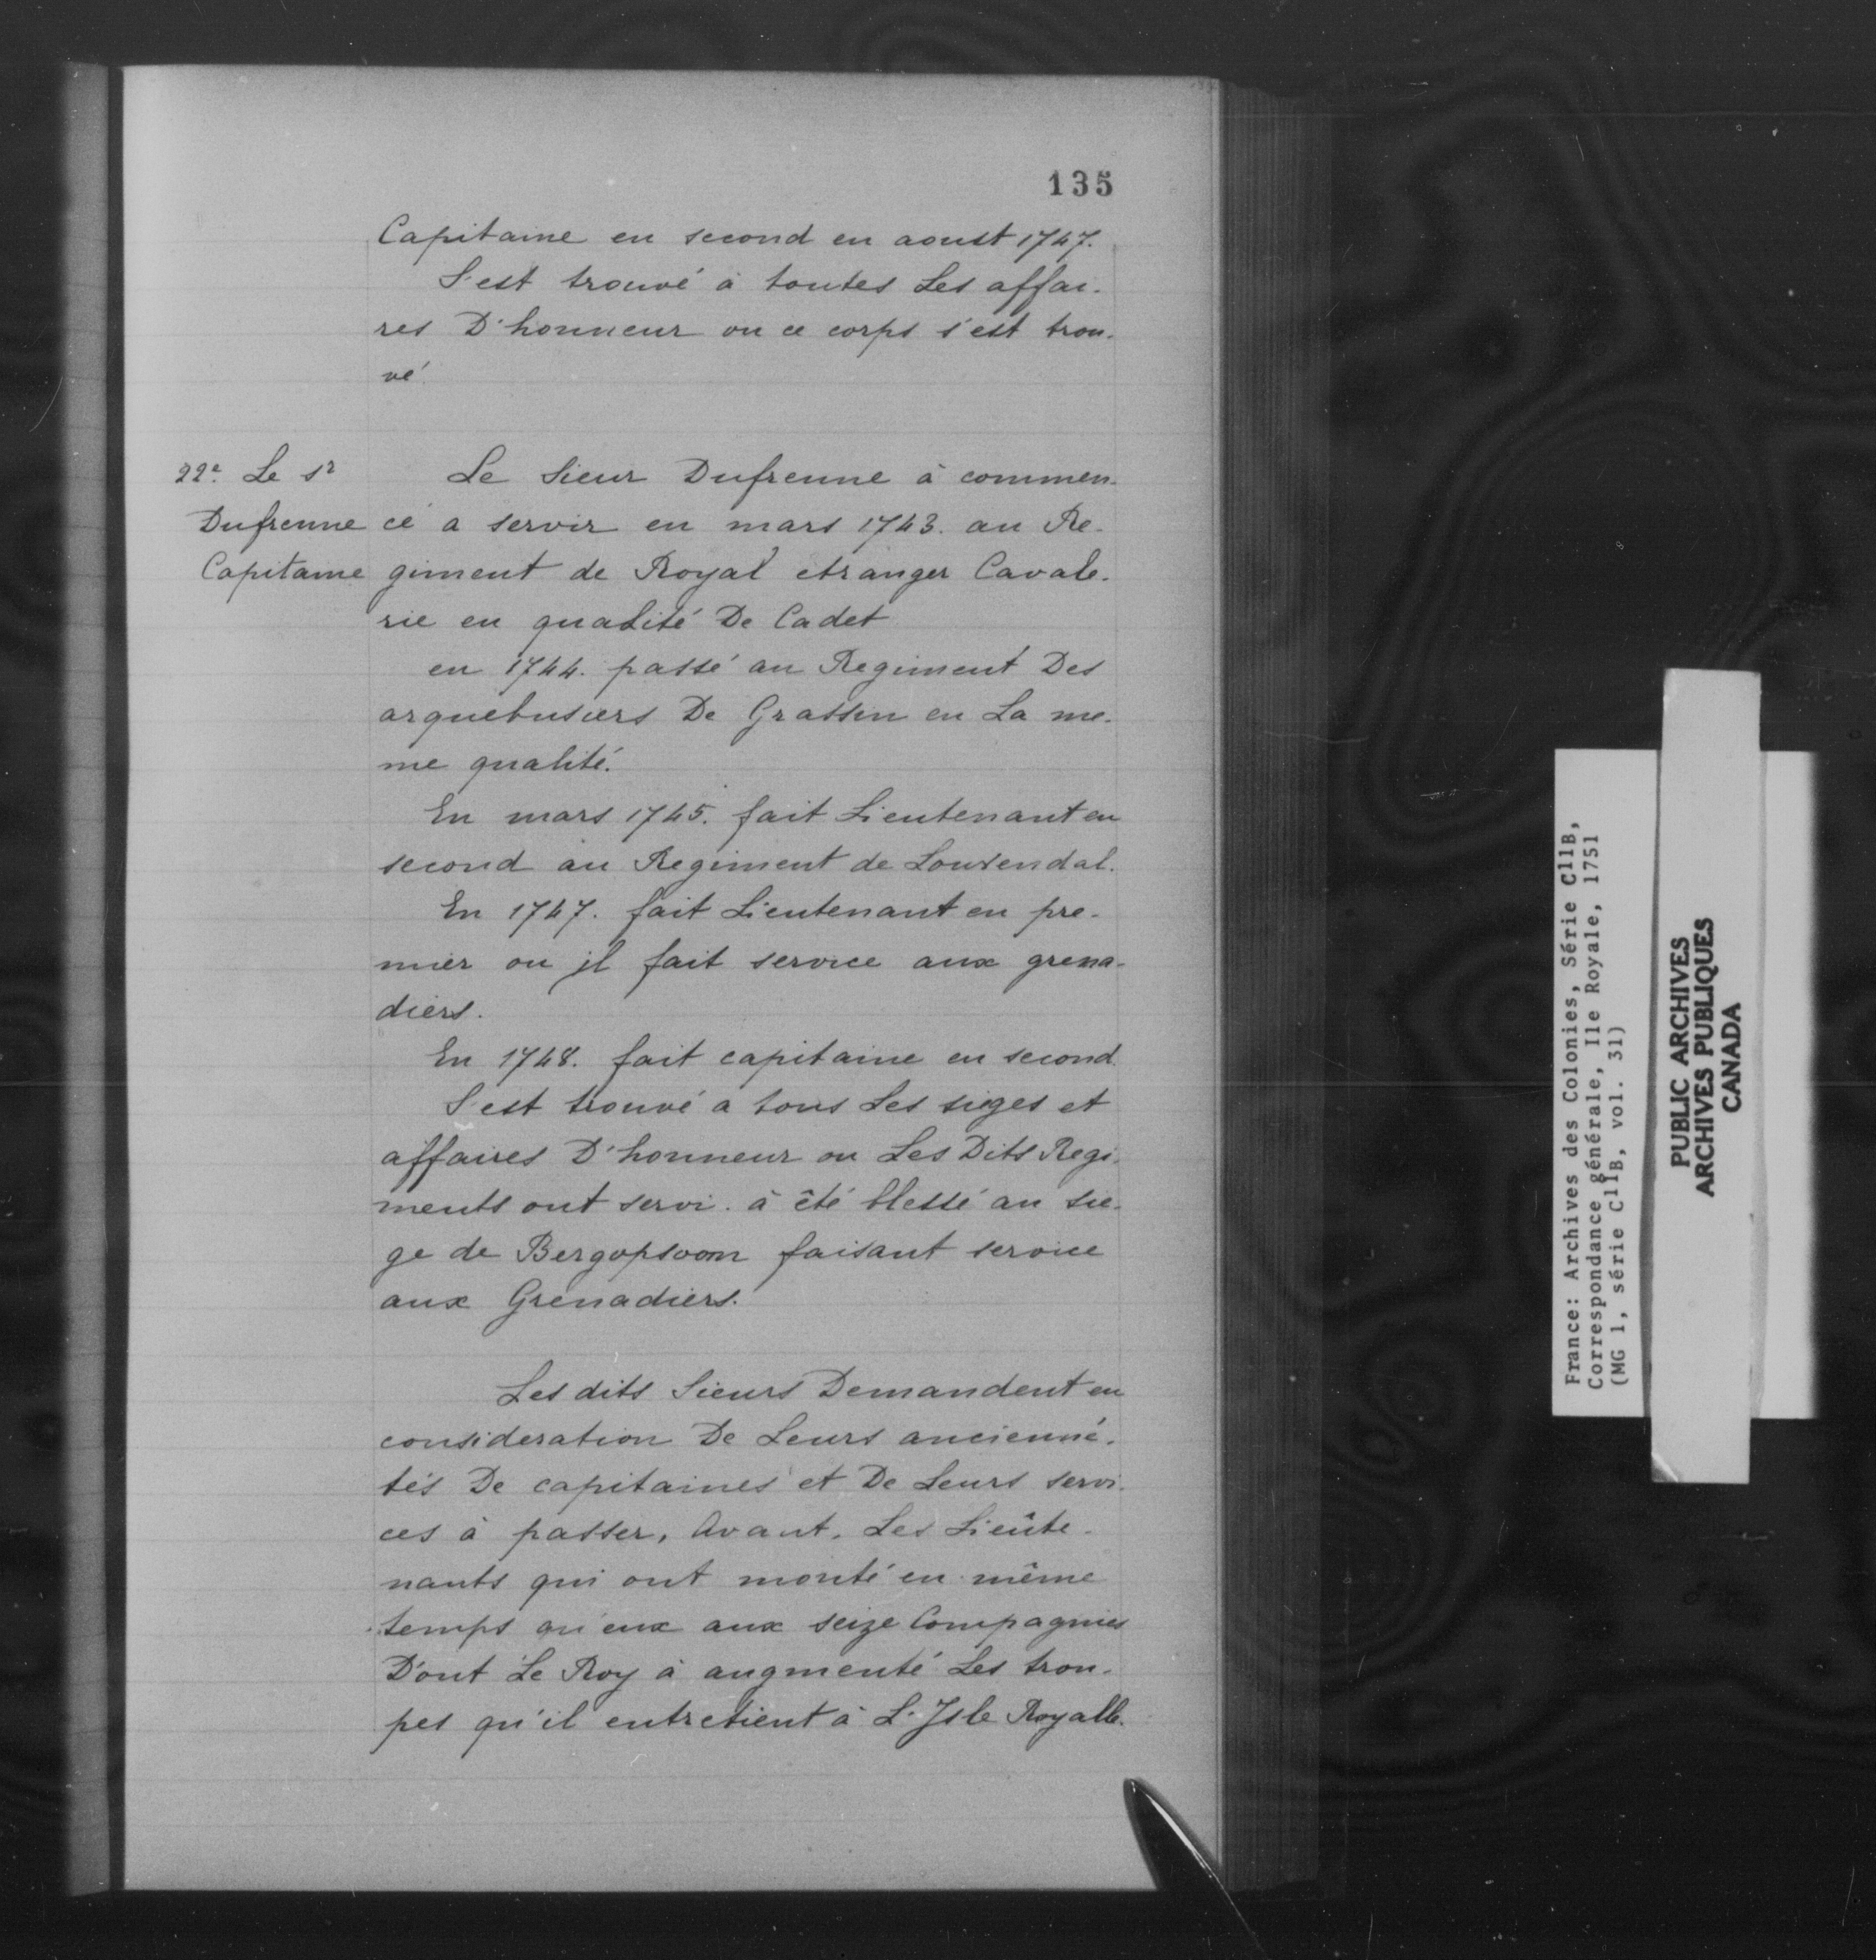 135
Capitaine en second en aoust 1747.
S'est trouvé à toutes Les affai-
res D'honneur ou ce corps s'est trou-
vé
22e. Le sr
Dufrenne
Capitaine
Le Sieur Dufrenne à commen-
cé a servir en mars 1743. au Re-
giment de Royal etranger Cavale-
rie en qualité De Cadet
en 1744. passé au Regiment Des
arquebusiers De Grassin en La me-
me qualité.
En mars 1745. fait Lieutenant en
second au Regiment de Louvendal.
En 1747. fait Lieutenant en pre-
mier ou jl fait service aux grena-
diers.
En 1748. fait capitaine en second.
S'est trouvé a tous Les sieges et
affaires D'honneur ou Les Dits Regi-
ments ont servi. à été blessé au sie-
ge de Bergopsoom faisant service
aux Grenadiers.
Les dits Sieurs Demandent en
consideration De Leurs ancienné-
tés De capitaines et De Leurs servi-
ces à passer, Avant, Les Lieûte-
nants qui ont monté en même
temps qu'eux aux seize Compagnies
D'ont Le Roy à augmenté Les trou-
pes qu'il entretient à L'Jsle Royalle.
France: Archives des Colonies, Série C11B,
Correspondance générale, Ile Royale, 1751
(MG 1, série C11B, vol. 31)
PUBLIC ARCHIVES
ARCHIVES PUBLIQUES
CANADA